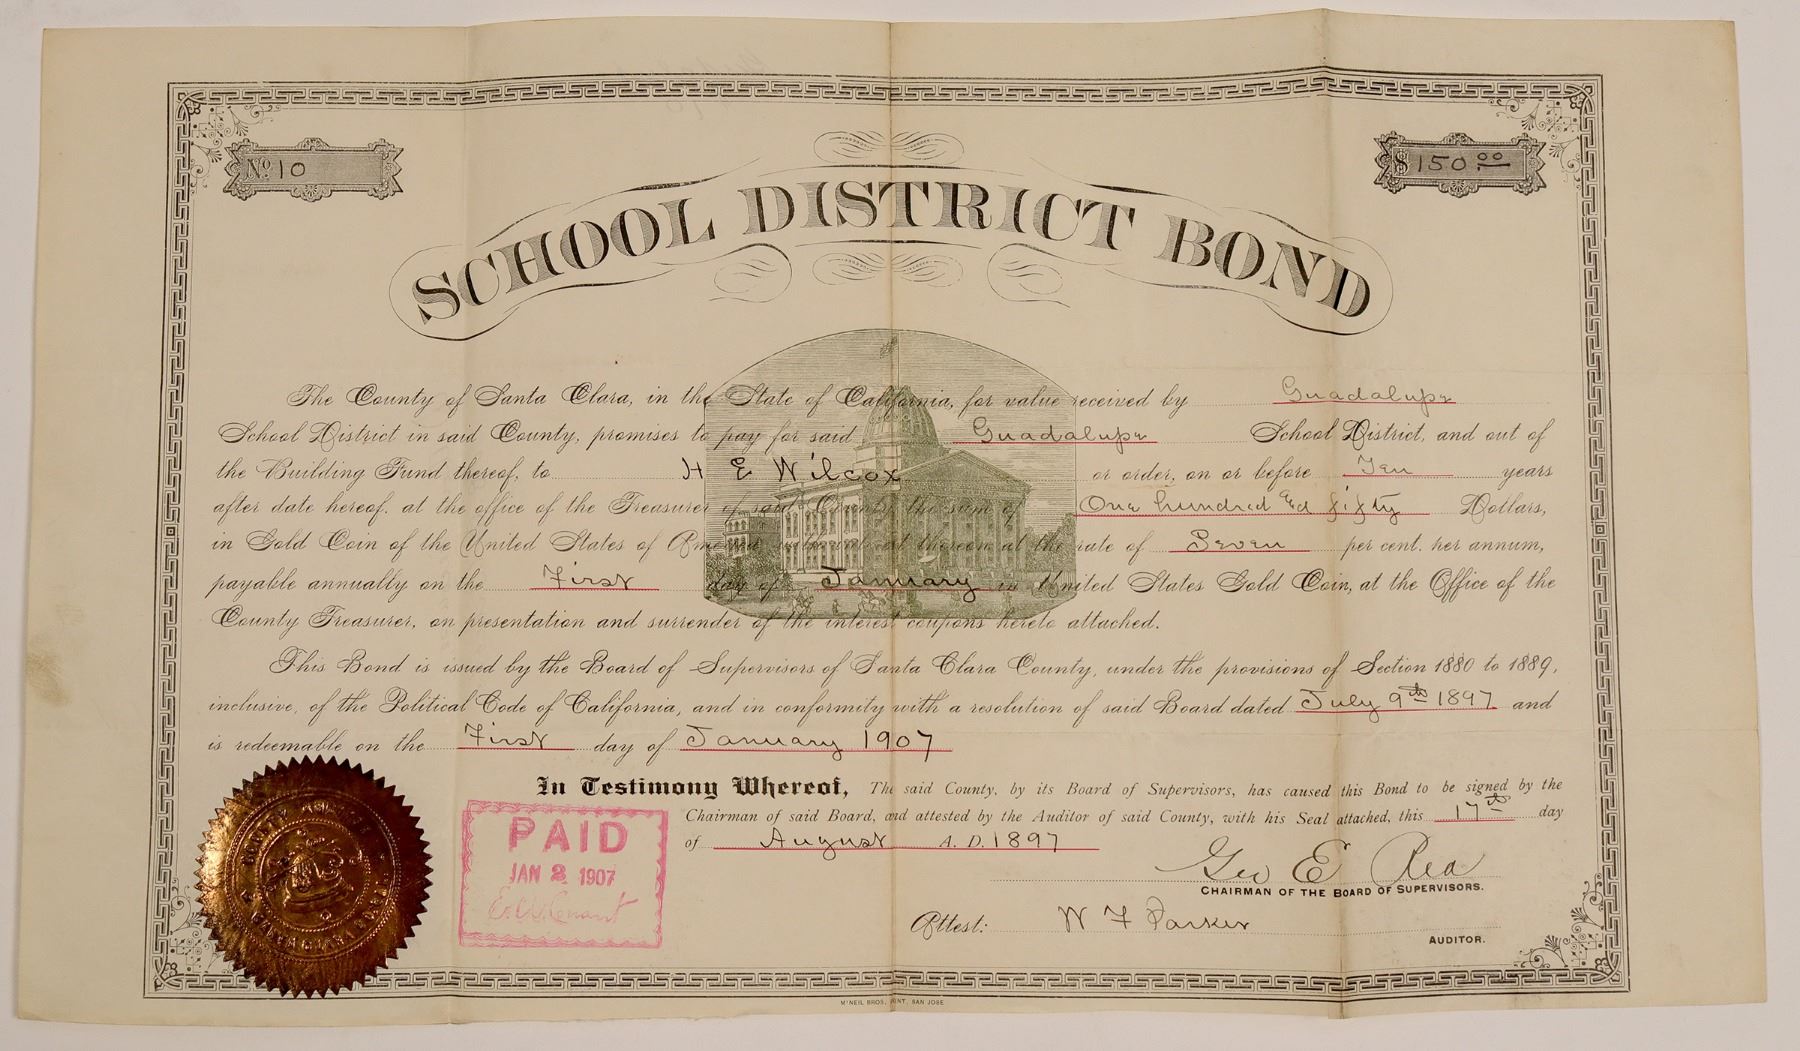 No. 10
$150.00
SCHOOL DISTRICT BOND
The County of Santa Clara, in the State of California, for value received by Guadalupe
School District in said County, promises to pay for said Guadalupe School District, and out of
the Building Fund thereof, to H E Wilcox or order, on or before Ten years
after date hereof, at the office of the Treasurer of said County, the sum of One hundred and fifty Dollars,
in Gold Coin of the United States of America with interest thereon at the rate of Seven per cent. per annum,
payable annually on the First day of January in United States Gold Coin, at the Office of the
County Treasurer, on presentation and surrender of the interest coupons hereto attached.
This Bond is issued by the Board of Supervisors of Santa Clara County, under the provisions of Section 1880 to 1889,
inclusive, of the Political Code of California, and in conformity with a resolution of said Board dated July 9th 1897 and
is redeemable on the First day of January 1907
In Testimony Whereof, The said County, by its Board of Supervisors, has caused this Bond to be signed by the
Chairman of said Board, and attested by the Auditor of said County, with his Seal attached, this 17th day
of August A. D. 1897
PAID
JAN 2 1907
Geo E Rea
CHAIRMAN OF THE BOARD OF SUPERVISORS.
Attest: W F Parker
AUDITOR.
M'NEIL BROS. PRINT, SAN JOSE